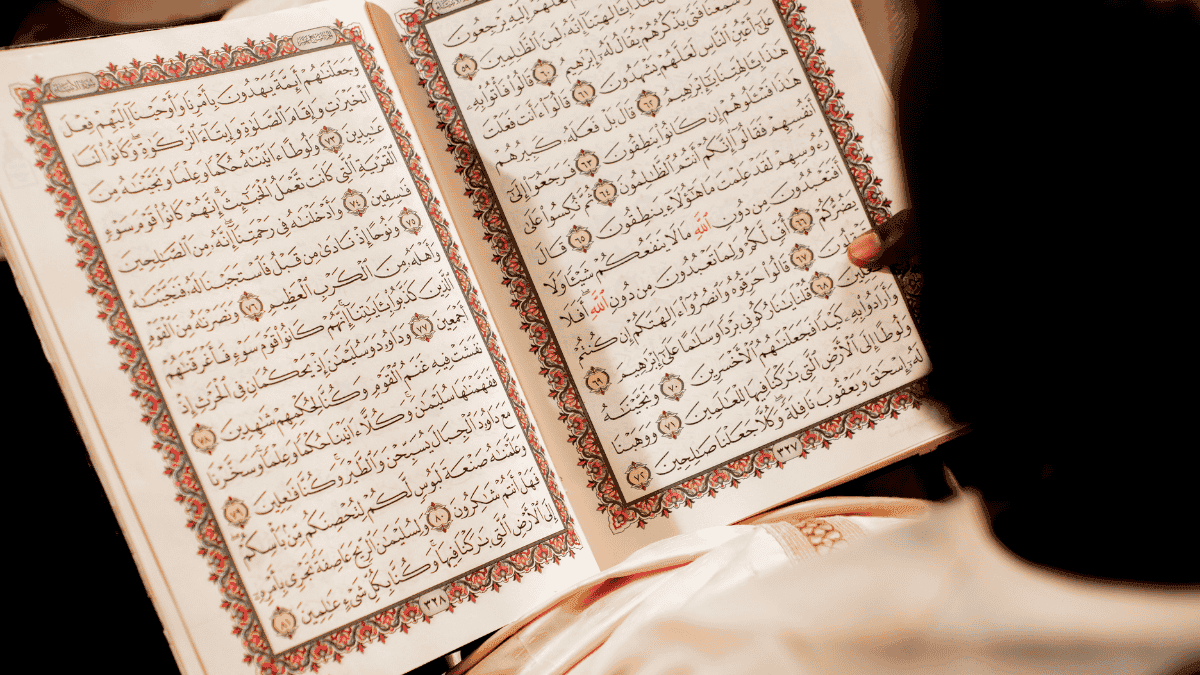 لَعَلَّهُمْ إِلَيْهِ يَرْجِعُونَ
هَٰذَا بِـَٔالِهَتِنَآ إِنَّهُۥ لَمِنَ ٱلظَّٰلِمِينَ ٥٩
سَمِعْنَا فَتًى يَذْكُرُهُمْ يُقَالُ لَهُۥٓ إِبْرَٰهِيمُ ٦٠ قَالُوا۟ فَأْتُوا۟ بِهِۦ
عَلَىٰٓ أَعْيُنِ ٱلنَّاسِ لَعَلَّهُمْ يَشْهَدُونَ ٦١ قَالُوٓا۟ ءَأَنتَ فَعَلْتَ
هَٰذَا بِـَٔالِهَتِنَا يَٰٓإِبْرَٰهِيمُ ٦٢ قَالَ بَلْ فَعَلَهُۥ كَبِيرُهُمْ
هَٰذَا فَسْـَٔلُوهُمْ إِن كَانُوا۟ يَنطِقُونَ ٦٣ فَرَجَعُوٓا۟ إِلَىٰٓ
أَنفُسِهِمْ فَقَالُوٓا۟ إِنَّكُمْ أَنتُمُ ٱلظَّٰلِمُونَ ٦٤ ثُمَّ نُكِسُوا۟ عَلَىٰ
رُءُوسِهِمْ لَقَدْ عَلِمْتَ مَا هَٰٓؤُلَآءِ يَنطِقُونَ ٦٥ قَالَ
أَفَتَعْبُدُونَ مِن دُونِ ٱللَّهِ مَا لَا يَنفَعُكُمْ شَيْـًٔا وَلَا
يَضُرُّكُمْ ٦٦ أُفٍّ لَّكُمْ وَلِمَا تَعْبُدُونَ مِن دُونِ ٱللَّهِ أَفَلَا
٦٧ قَالُوا۟ حَرِّقُوهُ وَٱنصُرُوٓا۟ ءَالِهَتَكُمْ إِن كُنتُمْ
٦٨ قُلْنَا يَٰنَارُ كُونِى بَرْدًا وَسَلَٰمًا عَلَىٰٓ إِبْرَٰهِيمَ ٦٩
وَأَرَادُوا۟ بِهِۦ كَيْدًا فَجَعَلْنَٰهُمُ ٱلْأَخْسَرِينَ ٧٠ وَنَجَّيْنَٰهُ
وَلُوطًا إِلَى ٱلْأَرْضِ ٱلَّتِى بَٰرَكْنَا فِيهَا لِلْعَٰلَمِينَ ٧١ وَوَهَبْنَا
لَهُۥٓ إِسْحَٰقَ وَيَعْقُوبَ نَافِلَةً وَكُلًّا جَعَلْنَا صَٰلِحِينَ ٧٢
٣٢٧
وَجَعَلْنَٰهُمْ أَئِمَّةً يَهْدُونَ بِأَمْرِنَا وَأَوْحَيْنَآ إِلَيْهِمْ فِعْلَ
ٱلْخَيْرَٰتِ وَإِقَامَ ٱلصَّلَوٰةِ وَإِيتَآءَ ٱلزَّكَوٰةِ وَكَانُوا۟ لَنَا
عَٰبِدِينَ ٧٣ وَلُوطًا ءَاتَيْنَٰهُ حُكْمًا وَعِلْمًا وَنَجَّيْنَٰهُ مِنَ
ٱلْقَرْيَةِ ٱلَّتِى كَانَت تَّعْمَلُ ٱلْخَبَٰٓئِثَ إِنَّهُمْ كَانُوا۟ قَوْمَ سَوْءٍ
فَٰسِقِينَ ٧٤ وَأَدْخَلْنَٰهُ فِى رَحْمَتِنَآ إِنَّهُۥ مِنَ ٱلصَّٰلِحِينَ
٧٥ وَنُوحًا إِذْ نَادَىٰ مِن قَبْلُ فَٱسْتَجَبْنَا لَهُۥ فَنَجَّيْنَٰهُ
وَأَهْلَهُۥ مِنَ ٱلْكَرْبِ ٱلْعَظِيمِ ٧٦ وَنَصَرْنَٰهُ مِنَ ٱلْقَوْمِ
ٱلَّذِينَ كَذَّبُوا۟ بِـَٔايَٰتِنَآ إِنَّهُمْ كَانُوا۟ قَوْمَ سَوْءٍ فَأَغْرَقْنَٰهُمْ
أَجْمَعِينَ ٧٧ وَدَاوُۥدَ وَسُلَيْمَٰنَ إِذْ يَحْكُمَانِ فِى ٱلْحَرْثِ إِذْ
نَفَشَتْ فِيهِ غَنَمُ ٱلْقَوْمِ وَكُنَّا لِحُكْمِهِمْ شَٰهِدِينَ ٧٨
فَفَهَّمْنَٰهَا سُلَيْمَٰنَ وَكُلًّا ءَاتَيْنَا حُكْمًا وَعِلْمًا وَسَخَّرْنَا
مَعَ دَاوُۥدَ ٱلْجِبَالَ يُسَبِّحْنَ وَٱلطَّيْرَ وَكُنَّا فَٰعِلِينَ ٧٩
وَعَلَّمْنَٰهُ صَنْعَةَ لَبُوسٍ لَّكُمْ لِتُحْصِنَكُم مِّنۢ بَأْسِكُمْ
فَهَلْ أَنتُمْ شَٰكِرُونَ ٨٠ وَلِسُلَيْمَٰنَ ٱلرِّيحَ عَاصِفَةً تَجْرِى بِأَمْرِهِۦٓ
إِلَى ٱلْأَرْضِ ٱلَّتِى بَٰرَكْنَا فِيهَا وَكُنَّا بِكُلِّ شَىْءٍ عَٰلِمِينَ ٨١
٣٢٨